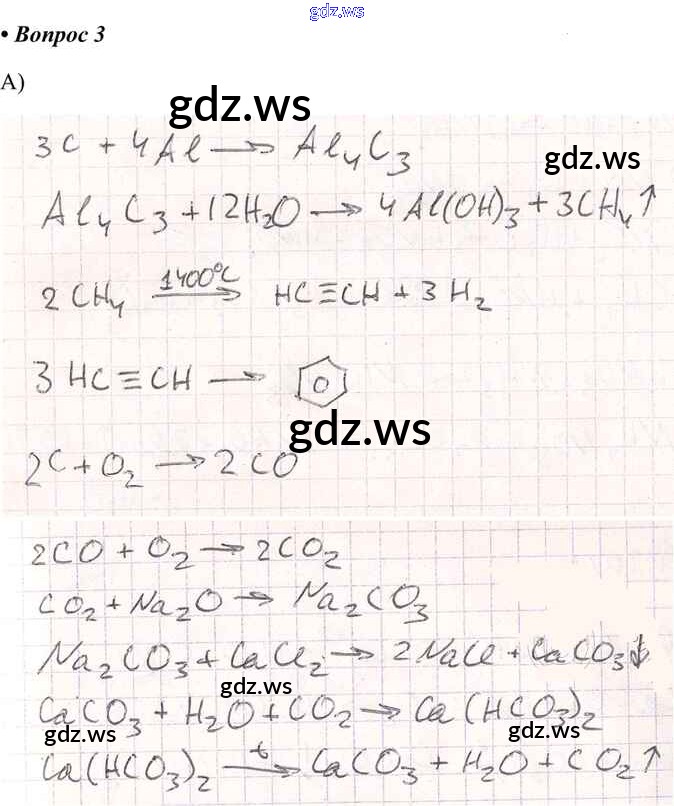 gdz.ws
• Вопрос 3
А)
gdz.ws
3C + 4Al → Al₄C₃
gdz.ws
Al₄C₃ + 12H₂O → 4Al(OH)₃ + 3CH₄↑
2CH₄ 1400°C → HC≡CH + 3H₂
3HC≡CH →
gdz.ws
2C + O₂ → 2CO
2CO + O₂ → 2CO₂
CO₂ + Na₂O → Na₂CO₃
Na₂CO₃ + CaCl₂ → 2NaCl + CaCO₃↓
gdz.ws
CaCO₃ + H₂O + CO₂ → Ca(HCO₃)₂
gdz.ws gdz.ws
Ca(HCO₃)₂ t → CaCO₃ + H₂O + CO₂↑